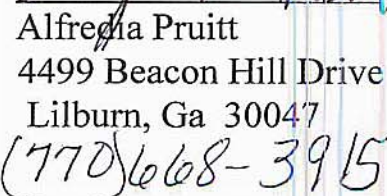 Alfredia Pruitt
4499 Beacon Hill Drive
Lilburn, Ga 30047
(770)668-3915